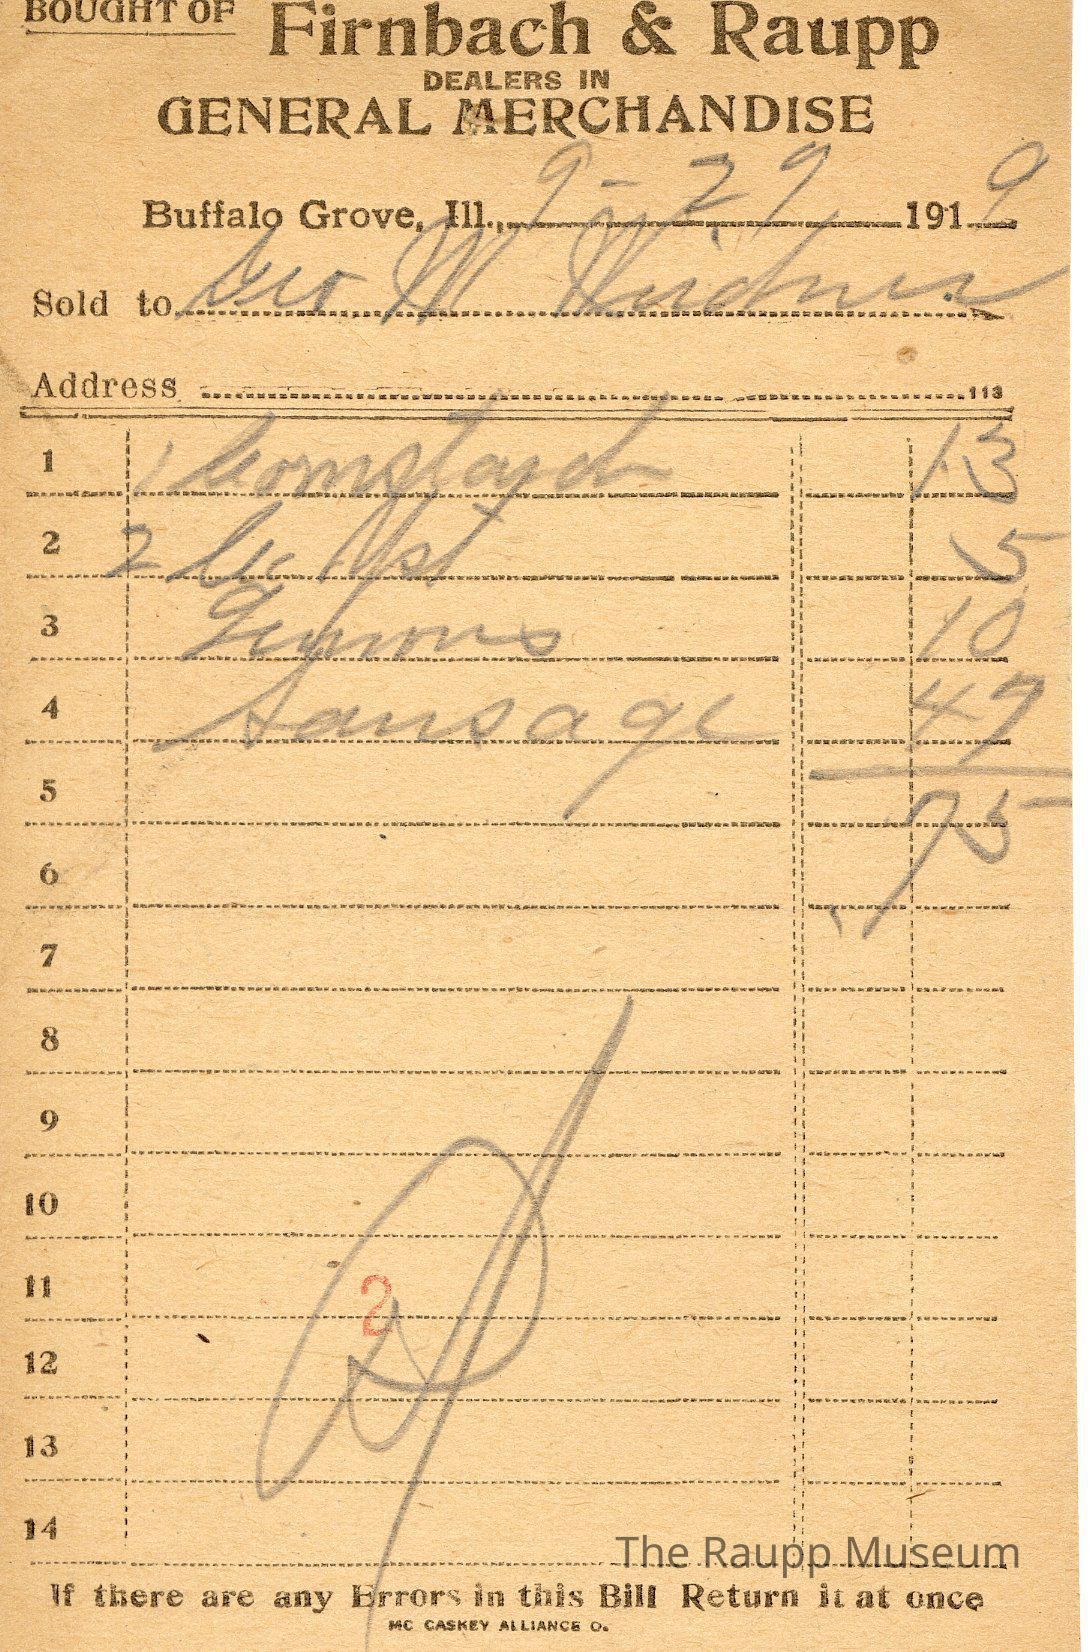 BOUGHT OF Firnbach & Raupp
DEALERS IN
GENERAL MERCHANDISE
Buffalo Grove, Ill., 9-29 1919
Sold to Geo M
Address 113
1 1 13
2 2 5
3 10
4 Sausage 47
5 75
6
7
8
9
10
11 2
12
13
14
The Raupp Museum
If there are any Errors in this Bill Return it at once
MC CASKEY ALLIANCE O.